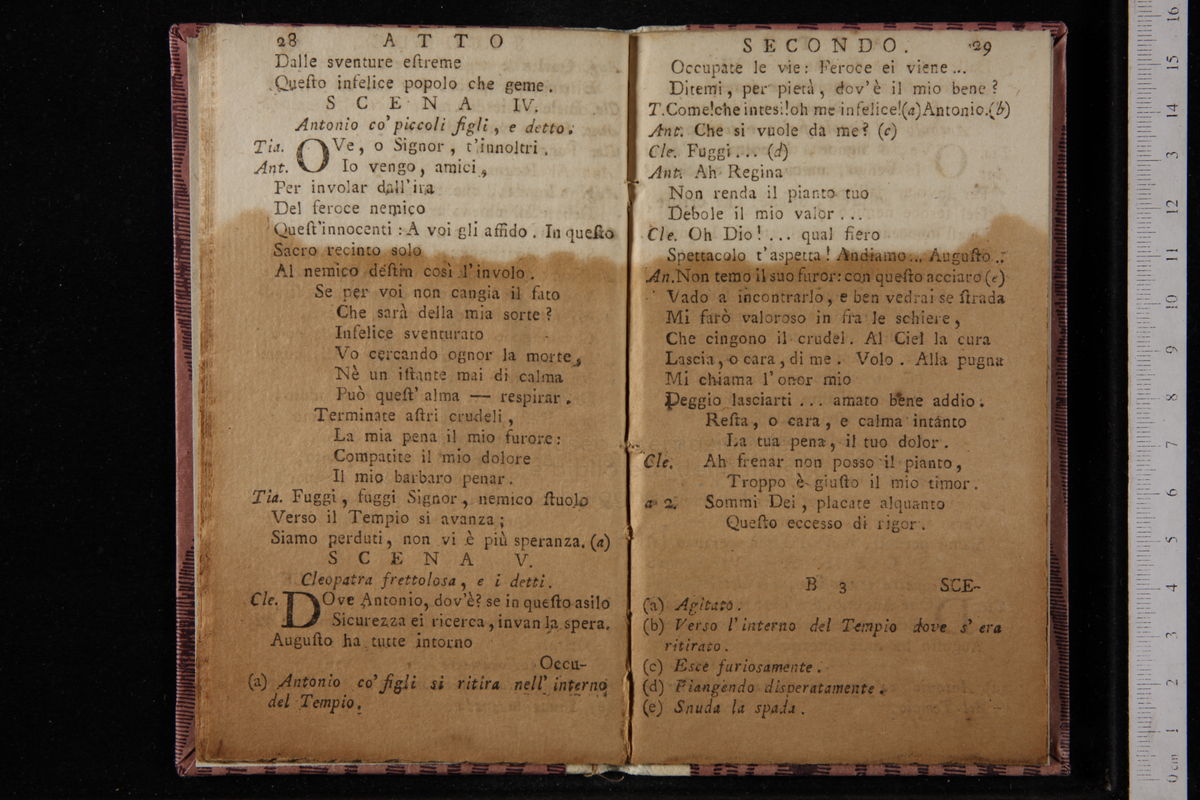 28 ATTO
Dalle sventure eſtreme
Queſto infelice popolo che geme.
SCENA IV.
Antonio co' piccoli figli, e detto.
Tia. OVe, o Signor, t'innoltri.
Ant. Io vengo, amici,
Per involar dall'ira
Del feroce nemico
Queſt'innocenti: A voi gli affido. In queſto
Sacro recinto solo
Al nemico deſtin così l'involo.
Se per voi non cangia il fato
Che sarà della mia sorte?
Infelice sventurato
Vo cercando ognor la morte,
Nè un iſtante mai di calma
Può queſt' alma — respirar.
Terminate aſtri crudeli,
La mia pena il mio furore:
Compatite il mio dolore
Il mio barbaro penar.
Tia. Fuggi, fuggi Signor, nemico ſtuolo
Verso il Tempio si avanza;
Siamo perduti, non vi è più speranza. (a)
SCENA V.
Cleopatra frettolosa, e i detti.
Cle. DOve Antonio, dov'è? se in queſto asilo
Sicurezza ei ricerca, invan la spera.
Auguſto ha tutte intorno
Occu-
(a) Antonio co' figli si ritira nell' interno
del Tempio.
SECONDO. 29
Occupate le vie: Feroce ei viene...
Ditemi, per pietà, dov'è il mio bene?
T. Come! che intesi! oh me infelice! (a) Antonio. (b)
Ant. Che si vuole da me? (c)
Cle. Fuggi... (d)
Ant. Ah Regina
Non renda il pianto tuo
Debole il mio valor...
Cle. Oh Dio!... qual fiero
Spettacolo t'aspetta! Andiamo... Auguſto...
An. Non temo il suo furor: con queſto acciaro (e)
Vado a incontrarlo, e ben vedrai se ſtrada
Mi farò valoroso in fra le schiere,
Che cingono il crudel. Al Ciel la cura
Lascia, o cara, di me. Volo. Alla pugna
Mi chiama l'onor mio
Deggio lasciarti... amato bene addio.
Reſta, o cara, e calma intanto
La tua pena, il tuo dolor.
Cle. Ah frenar non posso il pianto,
Troppo è giuſto il mio timor.
a 2. Sommi Dei, placate alquanto
Queſto eccesso di rigor.
B 3 SCE-
(a) Agitato.
(b) Verso l'interno del Tempio dove s' era
ritirato.
(c) Esce furiosamente.
(d) Piangendo disperatamente.
(e) Snuda la spada.
0 cm 1 2 3 4 5 6 7 8 9 10 11 12 13 14 15 16